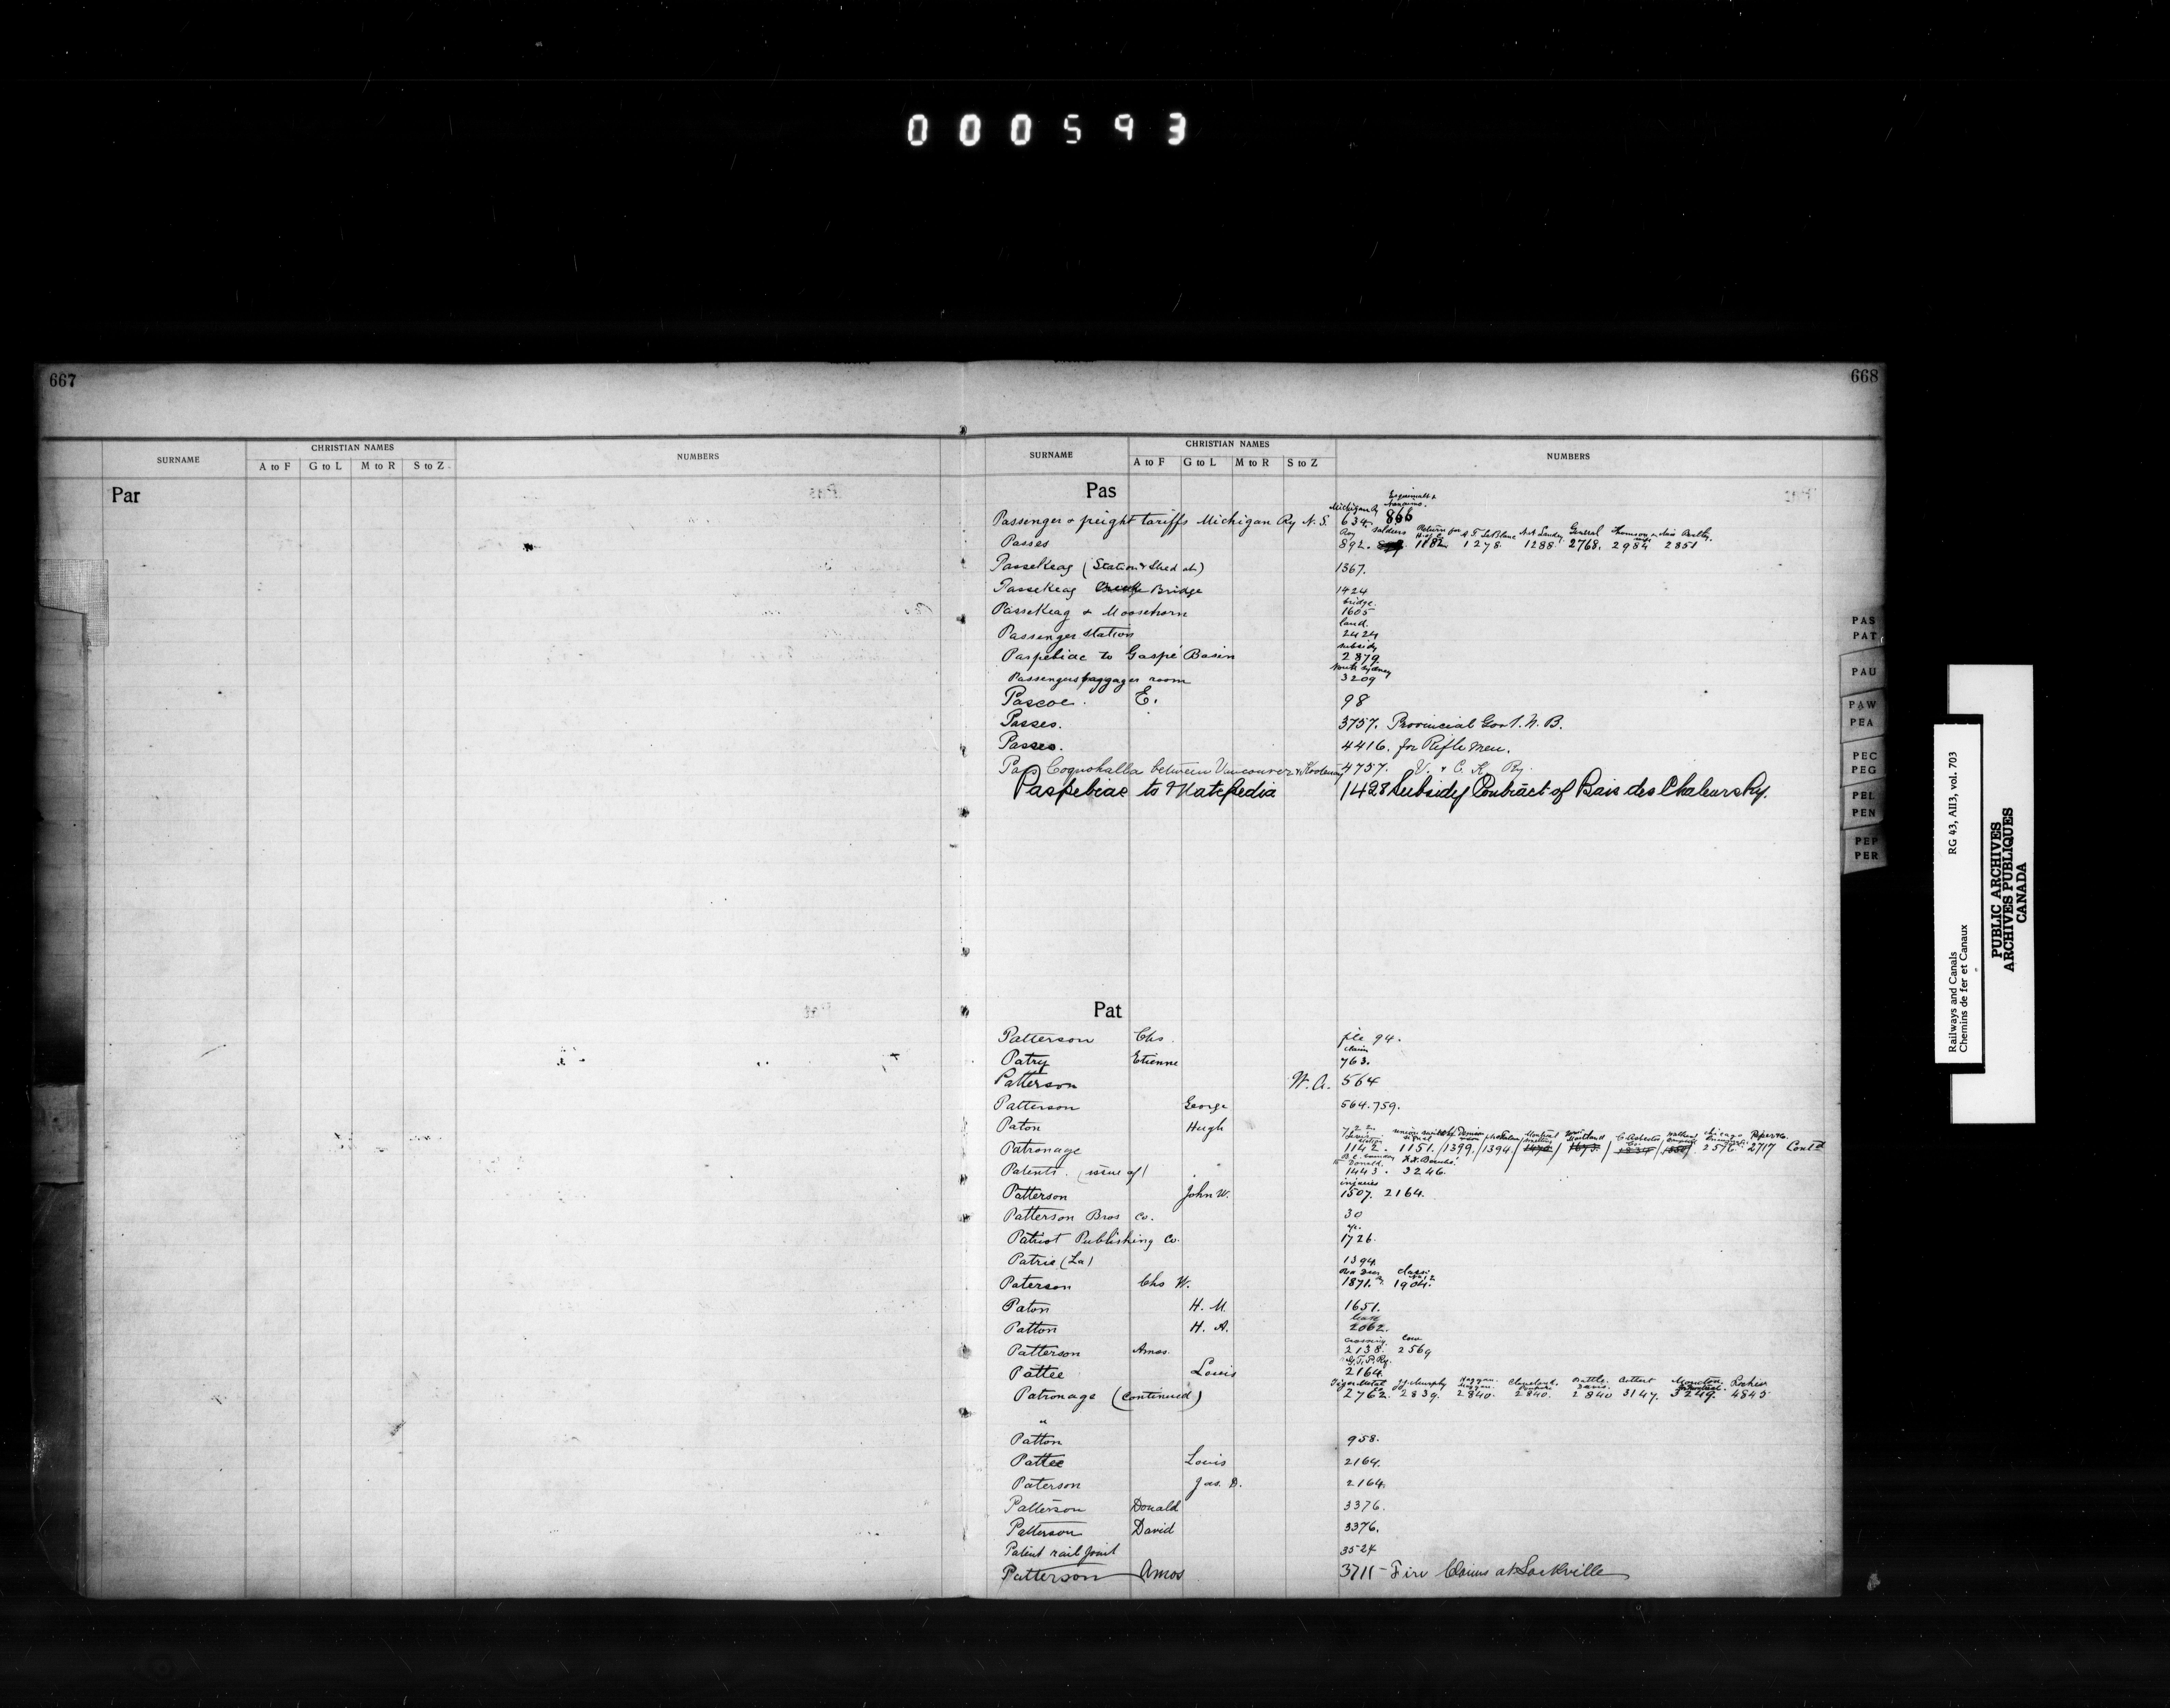 000593
667
668
SURNAME CHRISTIAN NAMES NUMBERS
A to F G to L M to R S to Z
Par
SURNAME CHRISTIAN NAMES NUMBERS
A to F G to L M to R S to Z
Pas
Michigan Ry Esquimalt & Nanaimo.
Passenger & freight tariffs Michigan Ry N.S. 634 866
Soldiers Return for A.T. LeBlanc General Thomson
Passes 892. 1182 1278 1288 2768. 2984 2851
PasseKeag (Station & Shed at) 1367.
PasseKeag Bridge 1424
bridge.
PasseKeag & Moosehorn 1605
land.
Passenger station 2424
subsidy
Paspebiac to Gaspé Basin 2879
North Sydney
Passengers baggager room 3209
Pascoe. E. 98
Passes. 3757. Provincial Govt. N.B.
Passes. 4416. for Rifle Men.
Pass Coquohalla between Vancouver & Kootenay 4757. V. & C. K Ry.
Paspebiac to Matapedia 1428 Subsidy Contract of Baie des Chaleurs Ry.
Pat
Patterson Chs. file 94.
claim
Patry Etienne 763.
Patterson W. A. 564
Patterson George 564. 759.
Paton Hugh 722
Patronage 1142. 1151. /1399. /1394. / 1470 / 1673. / 1834 / 1850 / 2576. 2717 Contd
Patents. (issue of) 1443. 3246.
injuries
Patterson John W. 1507. 2164.
Patterson Bros Co. 30
Patriot Publishing Co. 1726.
Patrie (La) 1394
Paterson Chs W. 1871. 1904.
Paton H. M. 1651.
lease
Patton H. A. 2062.
crossing. cow
Patterson Amos. 2138. 2569
G.T.P. Ry.
Pattee Louis 2164.
Tiger Metal Co J.J. Murphy Haggan Cleveland. Battle Cottert Moncton Lockie
Patronage (Continued) 2762. 2839. 2840. 2840. 2840 3147. 3249. 4845
"
Patton 958.
Pattee Louis 2164.
Paterson Jas. D. 2164.
Patterson Donald 3376.
Patterson David 3376.
Patent rail joint 3524
Patterson Amos 3711 - Fire Claims at Sackville
PAS
PAT
PAU
PAW
PEA
PEC
PEG
PEL
PEN
PEP
PER
Railways and Canals RG 43, AII3, vol. 703
Chemins de fer et Canaux
PUBLIC ARCHIVES
ARCHIVES PUBLIQUES
CANADA